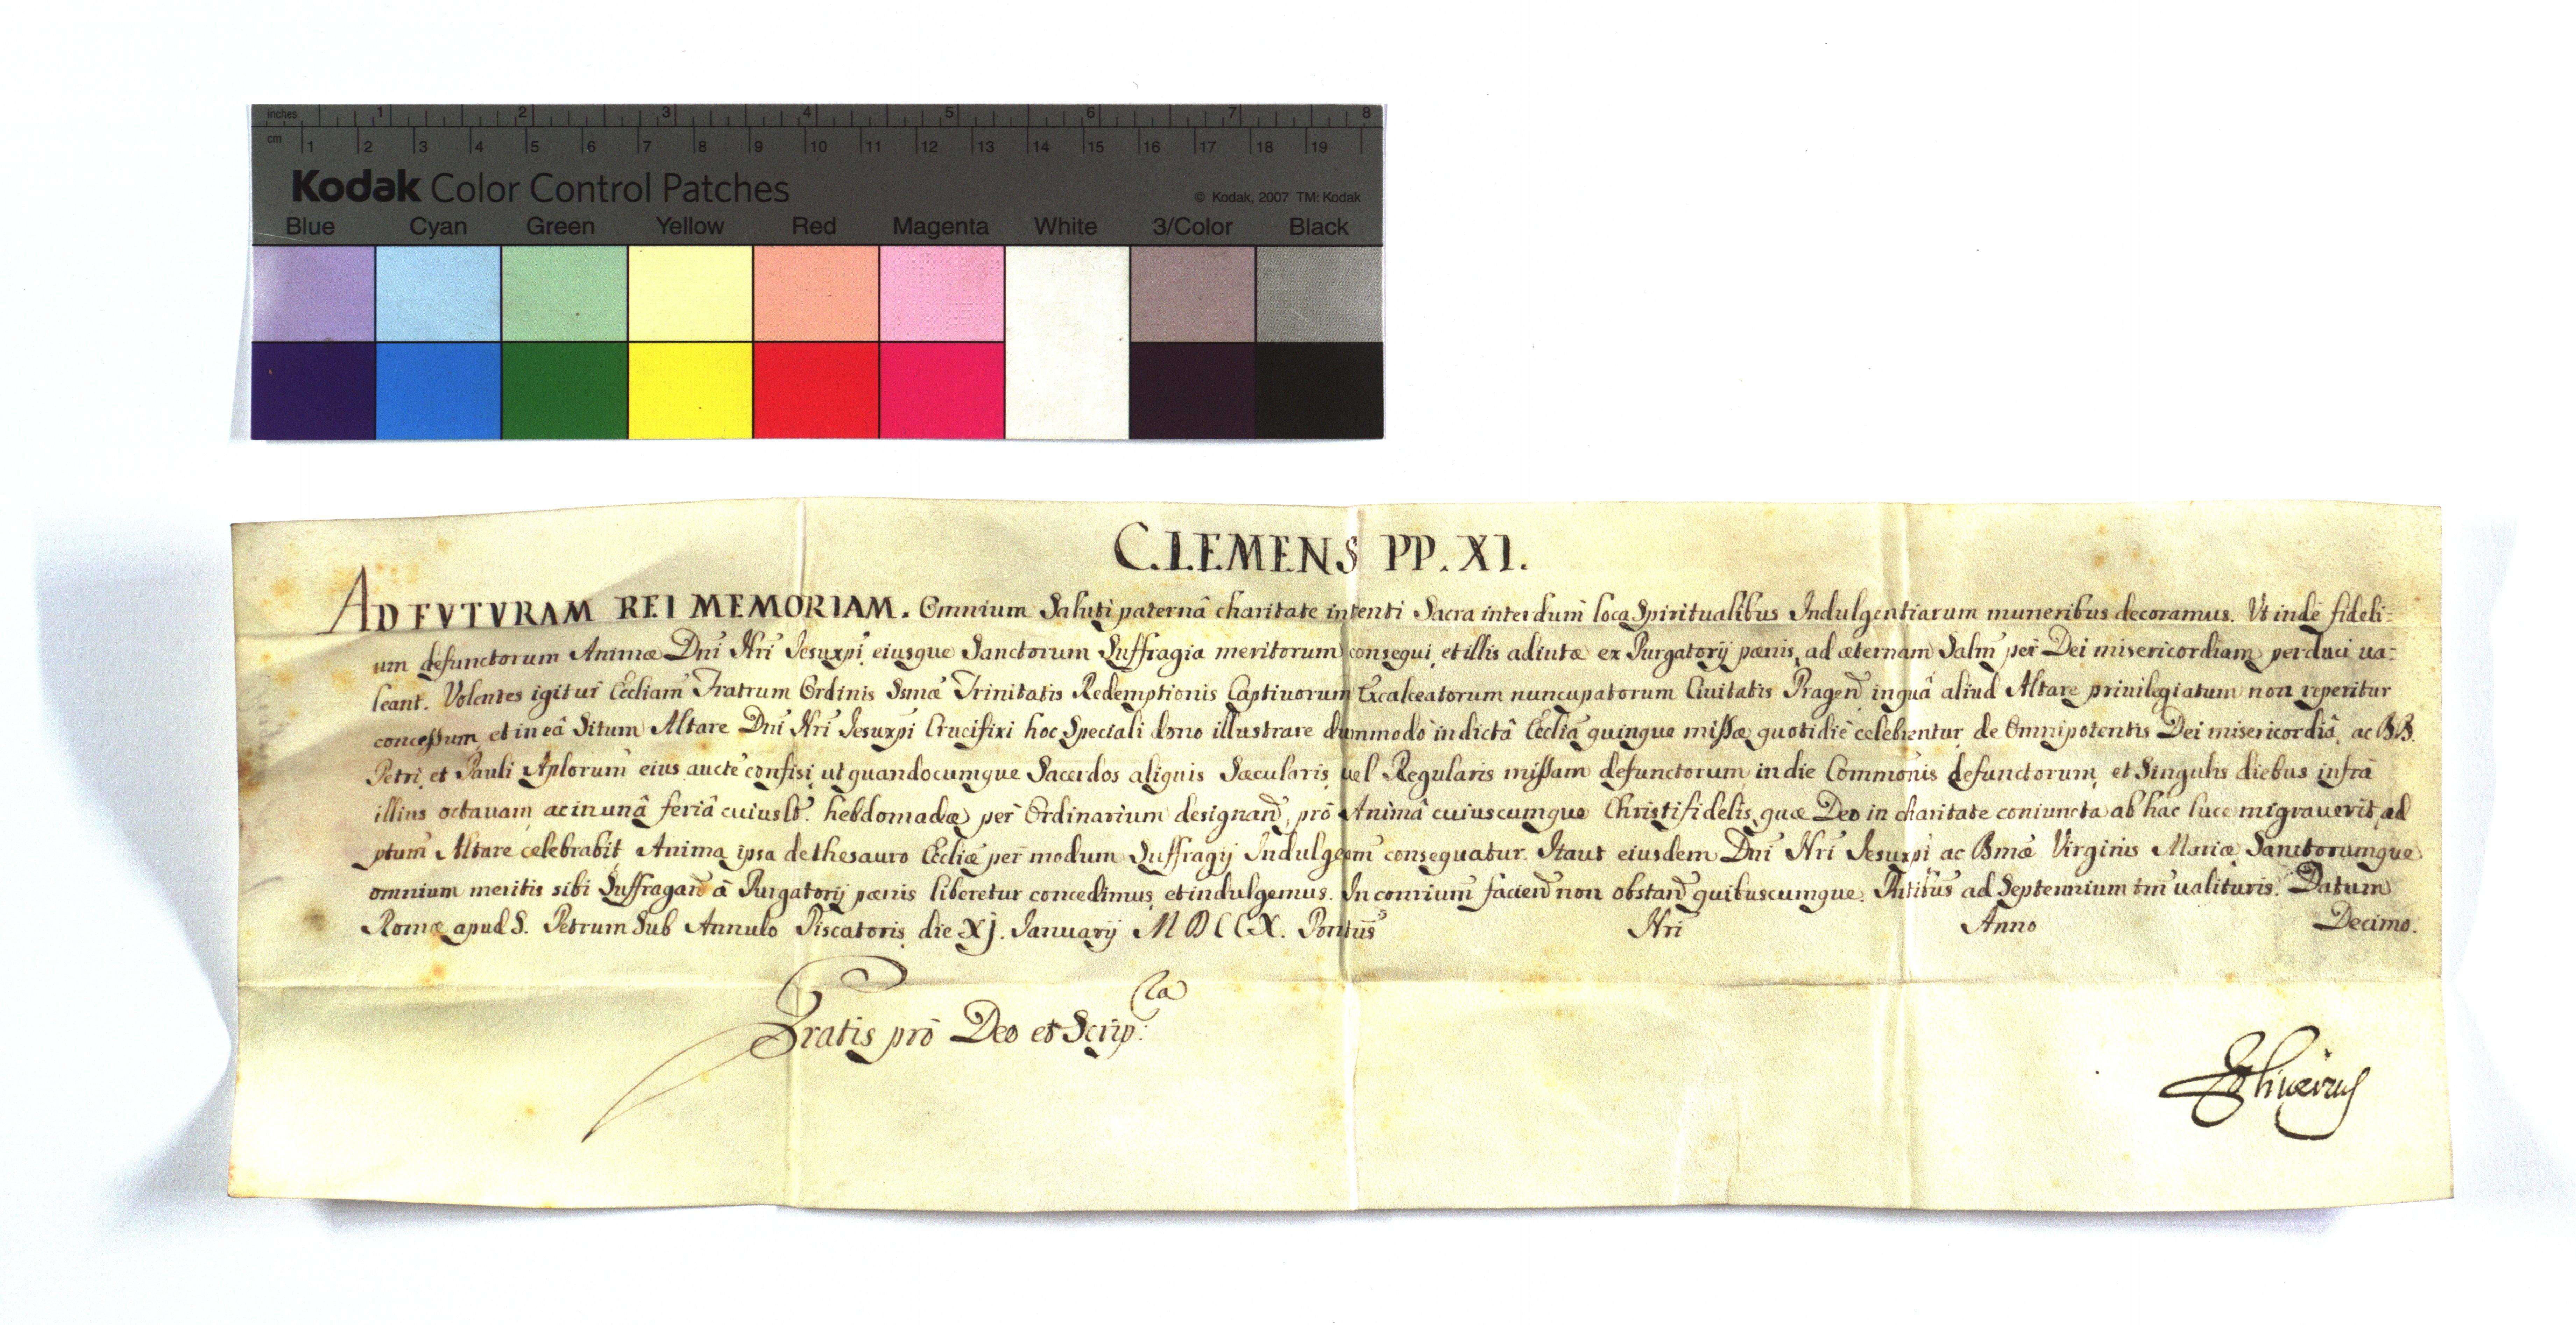 inches 1 2 3 4 5 6 7 8
cm 1 2 3 4 5 6 7 8 9 10 11 12 13 14 15 16 17 18 19
Kodak Color Control Patches
© Kodak, 2007 TM: Kodak
Blue Cyan Green Yellow Red Magenta White 3/Color Black
CLEMENS PP. XI.
AD FVTVRAM REI MEMORIAM. Omnium Saluti paternâ charitate intenti Sacra interdum loca Spiritualibus Indulgentiarum muneribus decoramus. Vt indè fideli-
um defunctorum Animæ Dnī Nrī Jesuxpī eiusque Sanctorum Suffragia meritorum consequi, et illis adiutæ ex Purgatorij pænis, ad æternam Salm̄ per Dei misericordiam perduci ua-
leant. Volentes igitur Eccliam̄ Fratrum Ordinis Ssmæ Trinitatis Redemptionis Captiuorum Excalceatorum nuncupatorum Ciuitatis Pragen̄ in quâ aliud Altare priuilegiatum non reperitur
concessum, et in eâ Situm Altare Dnī Nrī Jesuxpī Crucifixi hoc Speciali dono illustrare dummodò in dictâ Ecclīa quinque missæ quotidiè celebrentur, de Omnipotentis Dei misericordiâ, ac BB.
Petri, et Pauli Aplorum̄ eius auctē confisi, ut quandocumque Sacerdos aliquis Sæcularis, uel Regularis missam defunctorum in die Commōnis defunctorum, et Singulis diebus infrà
illius octauam, ac in unâ feriâ cuiuslt̄. hebdomadæ per Ordinarium designan̄d, prò Animâ cuiuscumque Christifidelis, quæ Deo in charitate coniuncta ab hac luce migrauerit, ad
ptum̄ Altare celebrabit Anima ipsa de thesauro Eccliæ per modum Suffragij Indulgeam̄ consequatur. Itaut eiusdem Dnī Nrī Jesuxpī ac Bmæ Virginis Mariæ Sanctorumque
omnium meritis sibi Suffragan̄ à Purgatorij pænis liberetur concedimus, et indulgemus. In conrium̄ facien̄ non obstan̄ quibuscumque. Pn̄tibus ad Septennium tm̄ ualituris. Datum
Romæ apud S. Petrum Sub Annulo Piscatoris die XJ. Januarij MDCCX. Pontus̄ Nrī Anno Decimo.
Gratis prò Deo et Scrip.ra